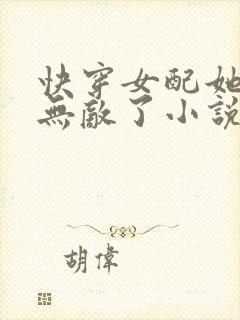 快穿女配她
無敵了小說
胡偉